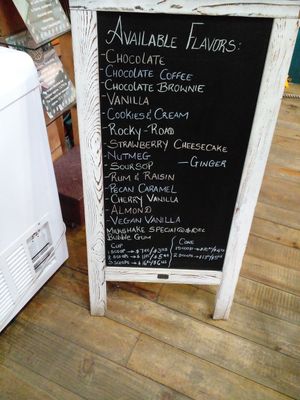 Available Flavors:
- Chocolate
- Chocolate Coffee
- Chocolate Brownie
- Vanilla
- Cookies & Cream
- Rocky-Road
- Strawberry Cheesecake
- Nutmeg
- Ginger
- Soursop
- Rum & Raisin
- Pecan Caramel
- Cherry Vanilla
- Almond
- Vegan Vanilla
Milkshake Special
Bubble Gum
Cup
1 Scoop
2 Scoops
3 Scoops
Cone
1 Scoop
2 Scoops